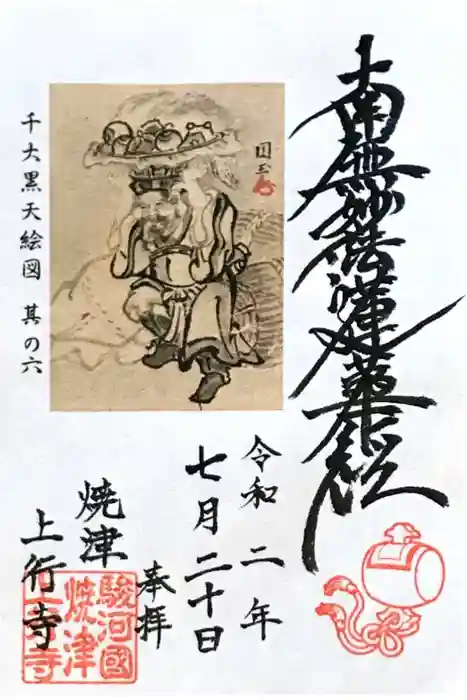 南無妙法蓮華経
千大黒天絵図 其の六
令和二年
七月二十日
奉拝
焼津
上行寺
駿河國
焼津
上行寺